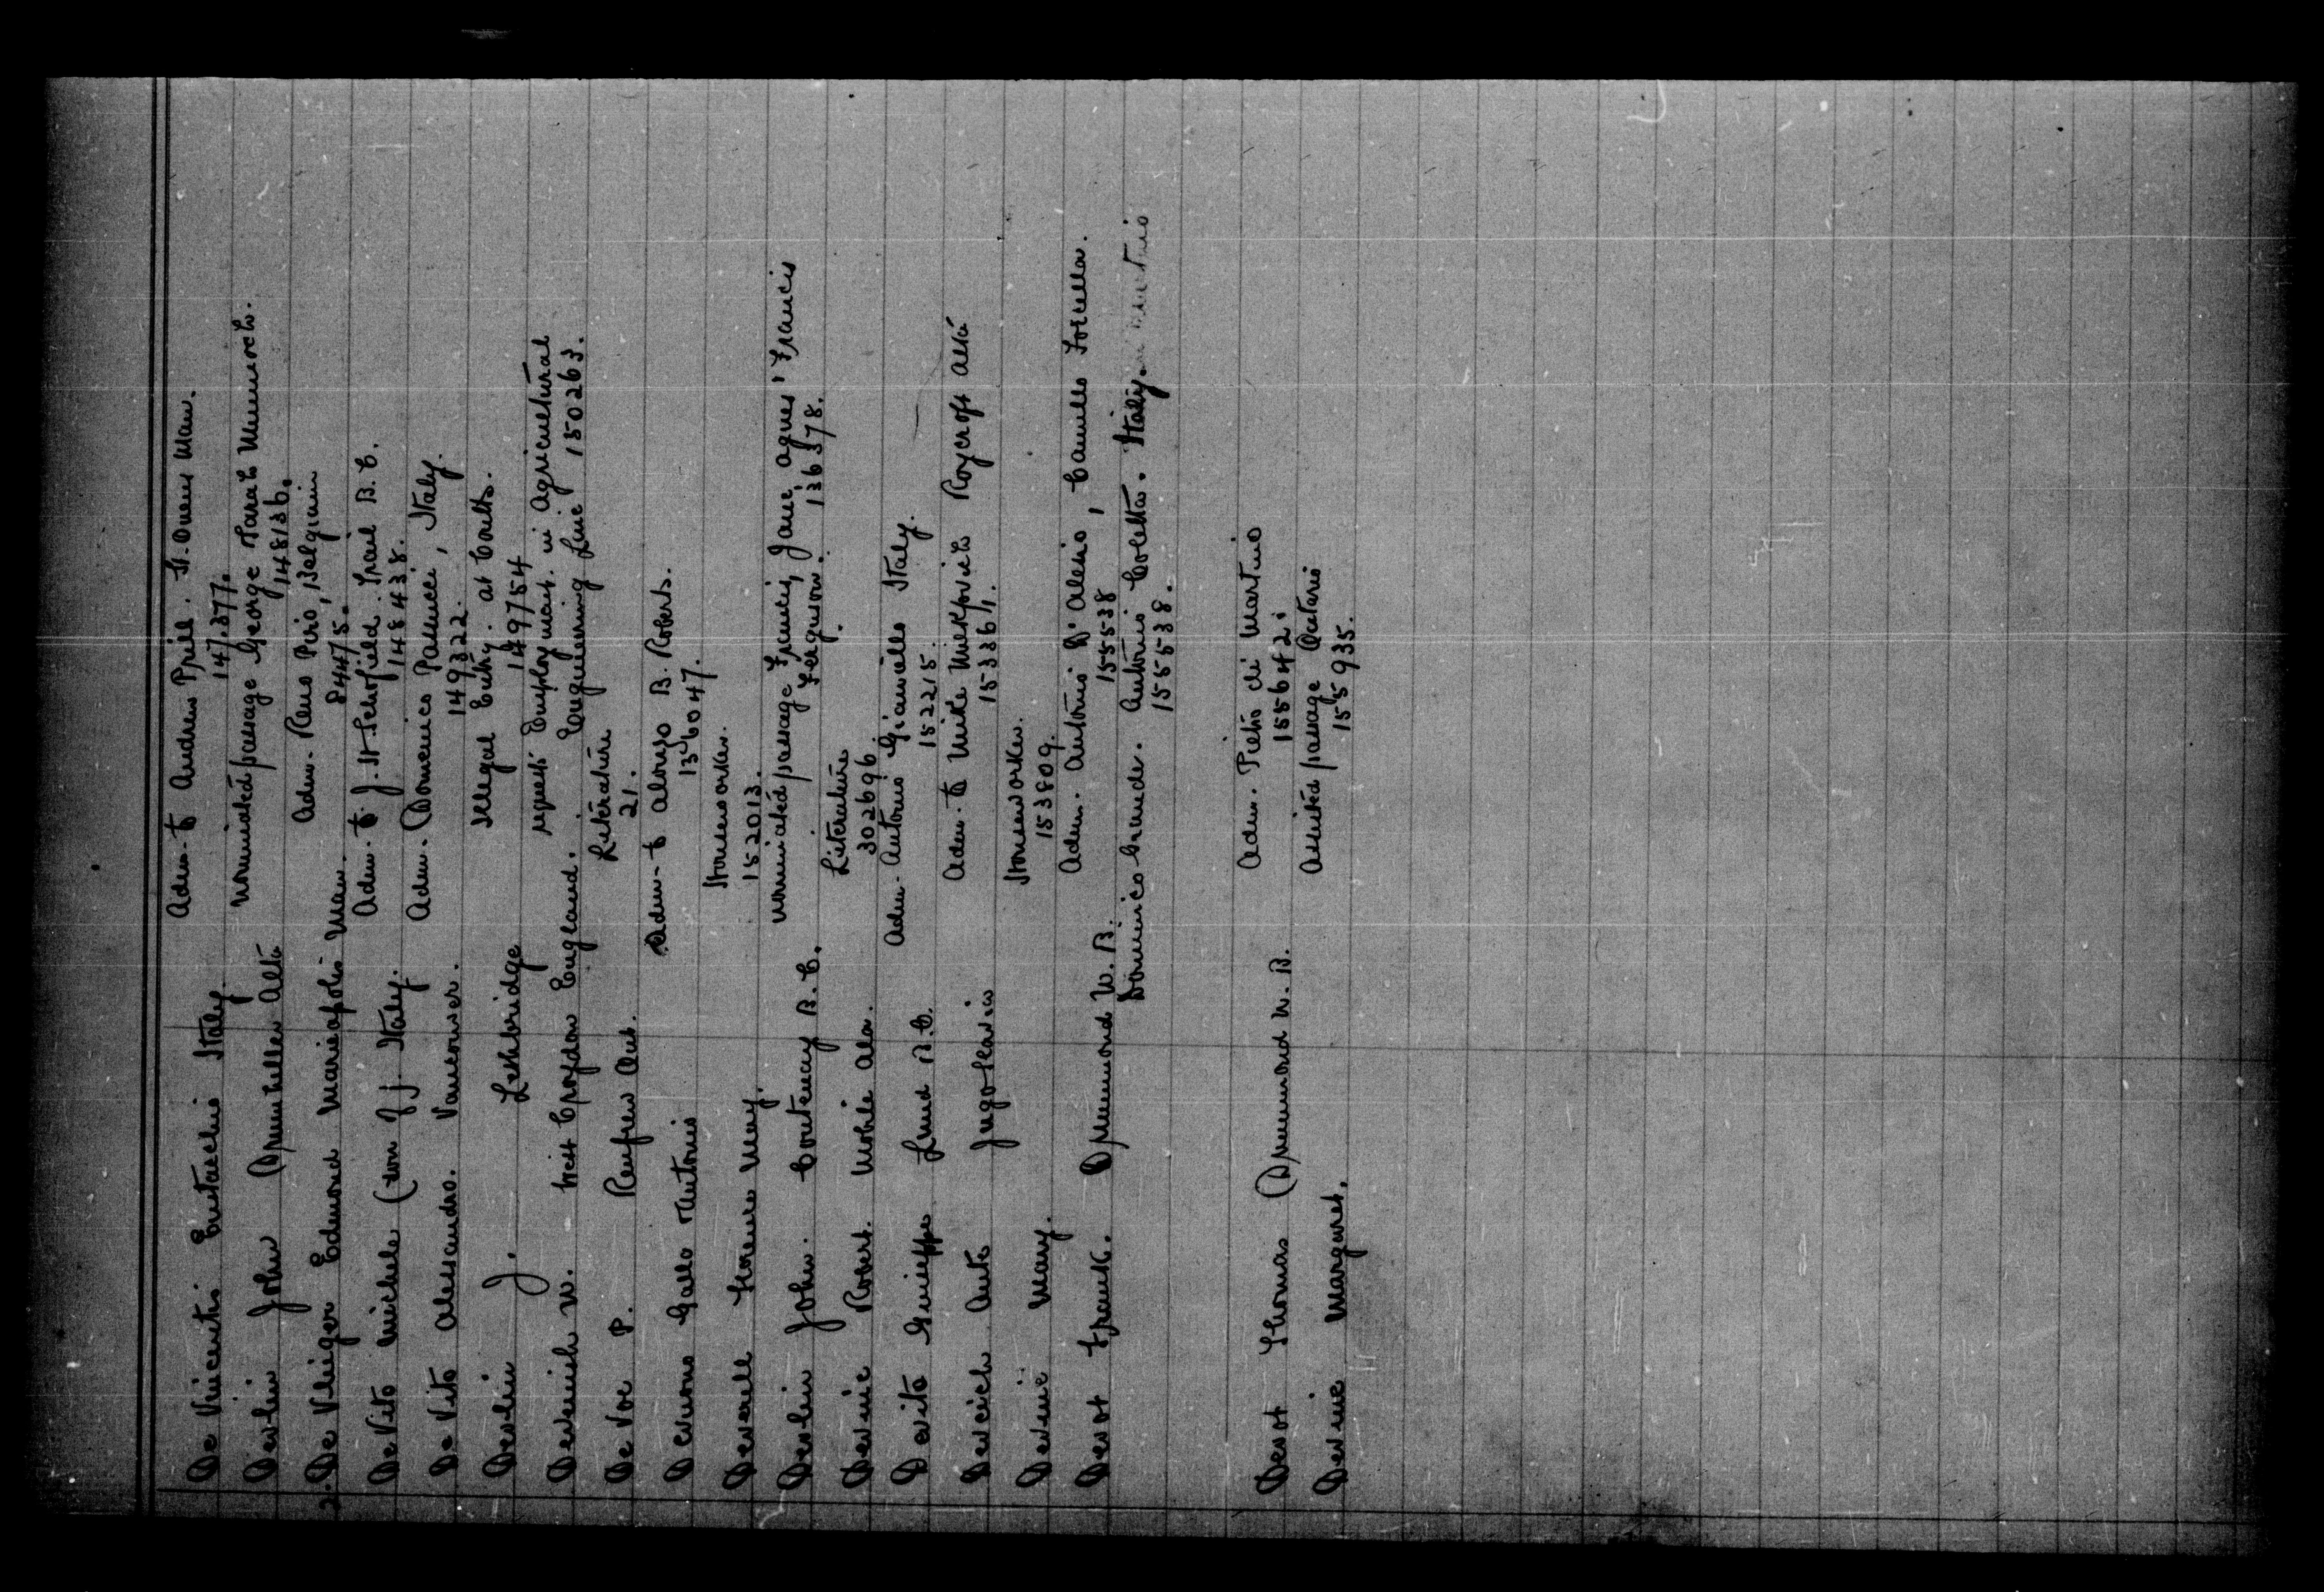 De Vincentis Eustachio Italy. Adm. to Andrew Priel. St. Ouens Man.
147377.
Devlin John Drumheller Alta Nominated passage George Sarah
148136.
2. De Vlieger Edmond Mariapolis Man. Adm. Remo Piro, Belgium
84475.
De Vito Michele (son of J. Italy. Adm. to J. H. Schofield. Trail B.C.
148438.
De Vito Alessandro. Vancouver. Adm. Domenico Palucci, Italy.
149322.
Devlin J. Lethbridge Illegal Entry. at Coutts.
149754
Devenish W. West Croydon England. requests Employment in Agricultural
Engineering Line 150263.
De Voe P. Renfrew Ont. Literature
21.
Devuono Gallo Antonio Adm. to Alonzo B. Roberts.
136047.
Deverell Florence May. Houseworker.
152013.
Devlin John. Courtenay B.C. Nominated passage Francis, Jane, Agnes, Francis
Ferguson. 136378.
Devine Robert. Mobile Ala. Literature
302696.
Devito Guiseppe Lund B.C. Adm. Antonio Giamello Italy.
152215.
Devcich Ante Jugoslavia Adm. to Mike Milkovich Roycroft Alta
153361.
Devine Mary. Houseworker.
153809.
Devot Frank. Drummond W. B. Adm. Antonio D'Alesio, Camillo Forcella.
155538
Dominico Grande. Antonio Coletta. Italy.
155538.
Devot Thomas Drummond N. B. Adm. Pietro di Martino
155642.
Devine Margaret. Assisted passage Ontario
155935.